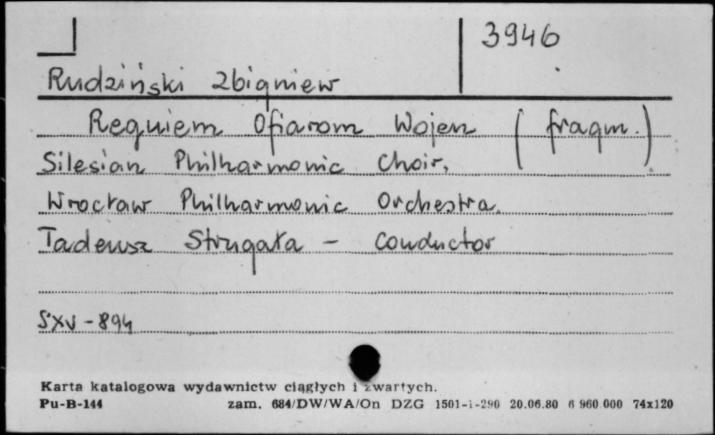 3946
Rudziński Zbigniew
Requiem Ofiarom Wojen (fragm.)
Silesian Philharmonic Choir,
Wrocław Philharmonic Orchestra,
Tadeusz Strugała - conductor
SXV-894
Karta katalogowa wydawnictw ciągłych i zwartych.
Pu-B-144 zam. 684/DW/WA/On DZG 1501-1-290 20.06.80 6 960 000 74x120